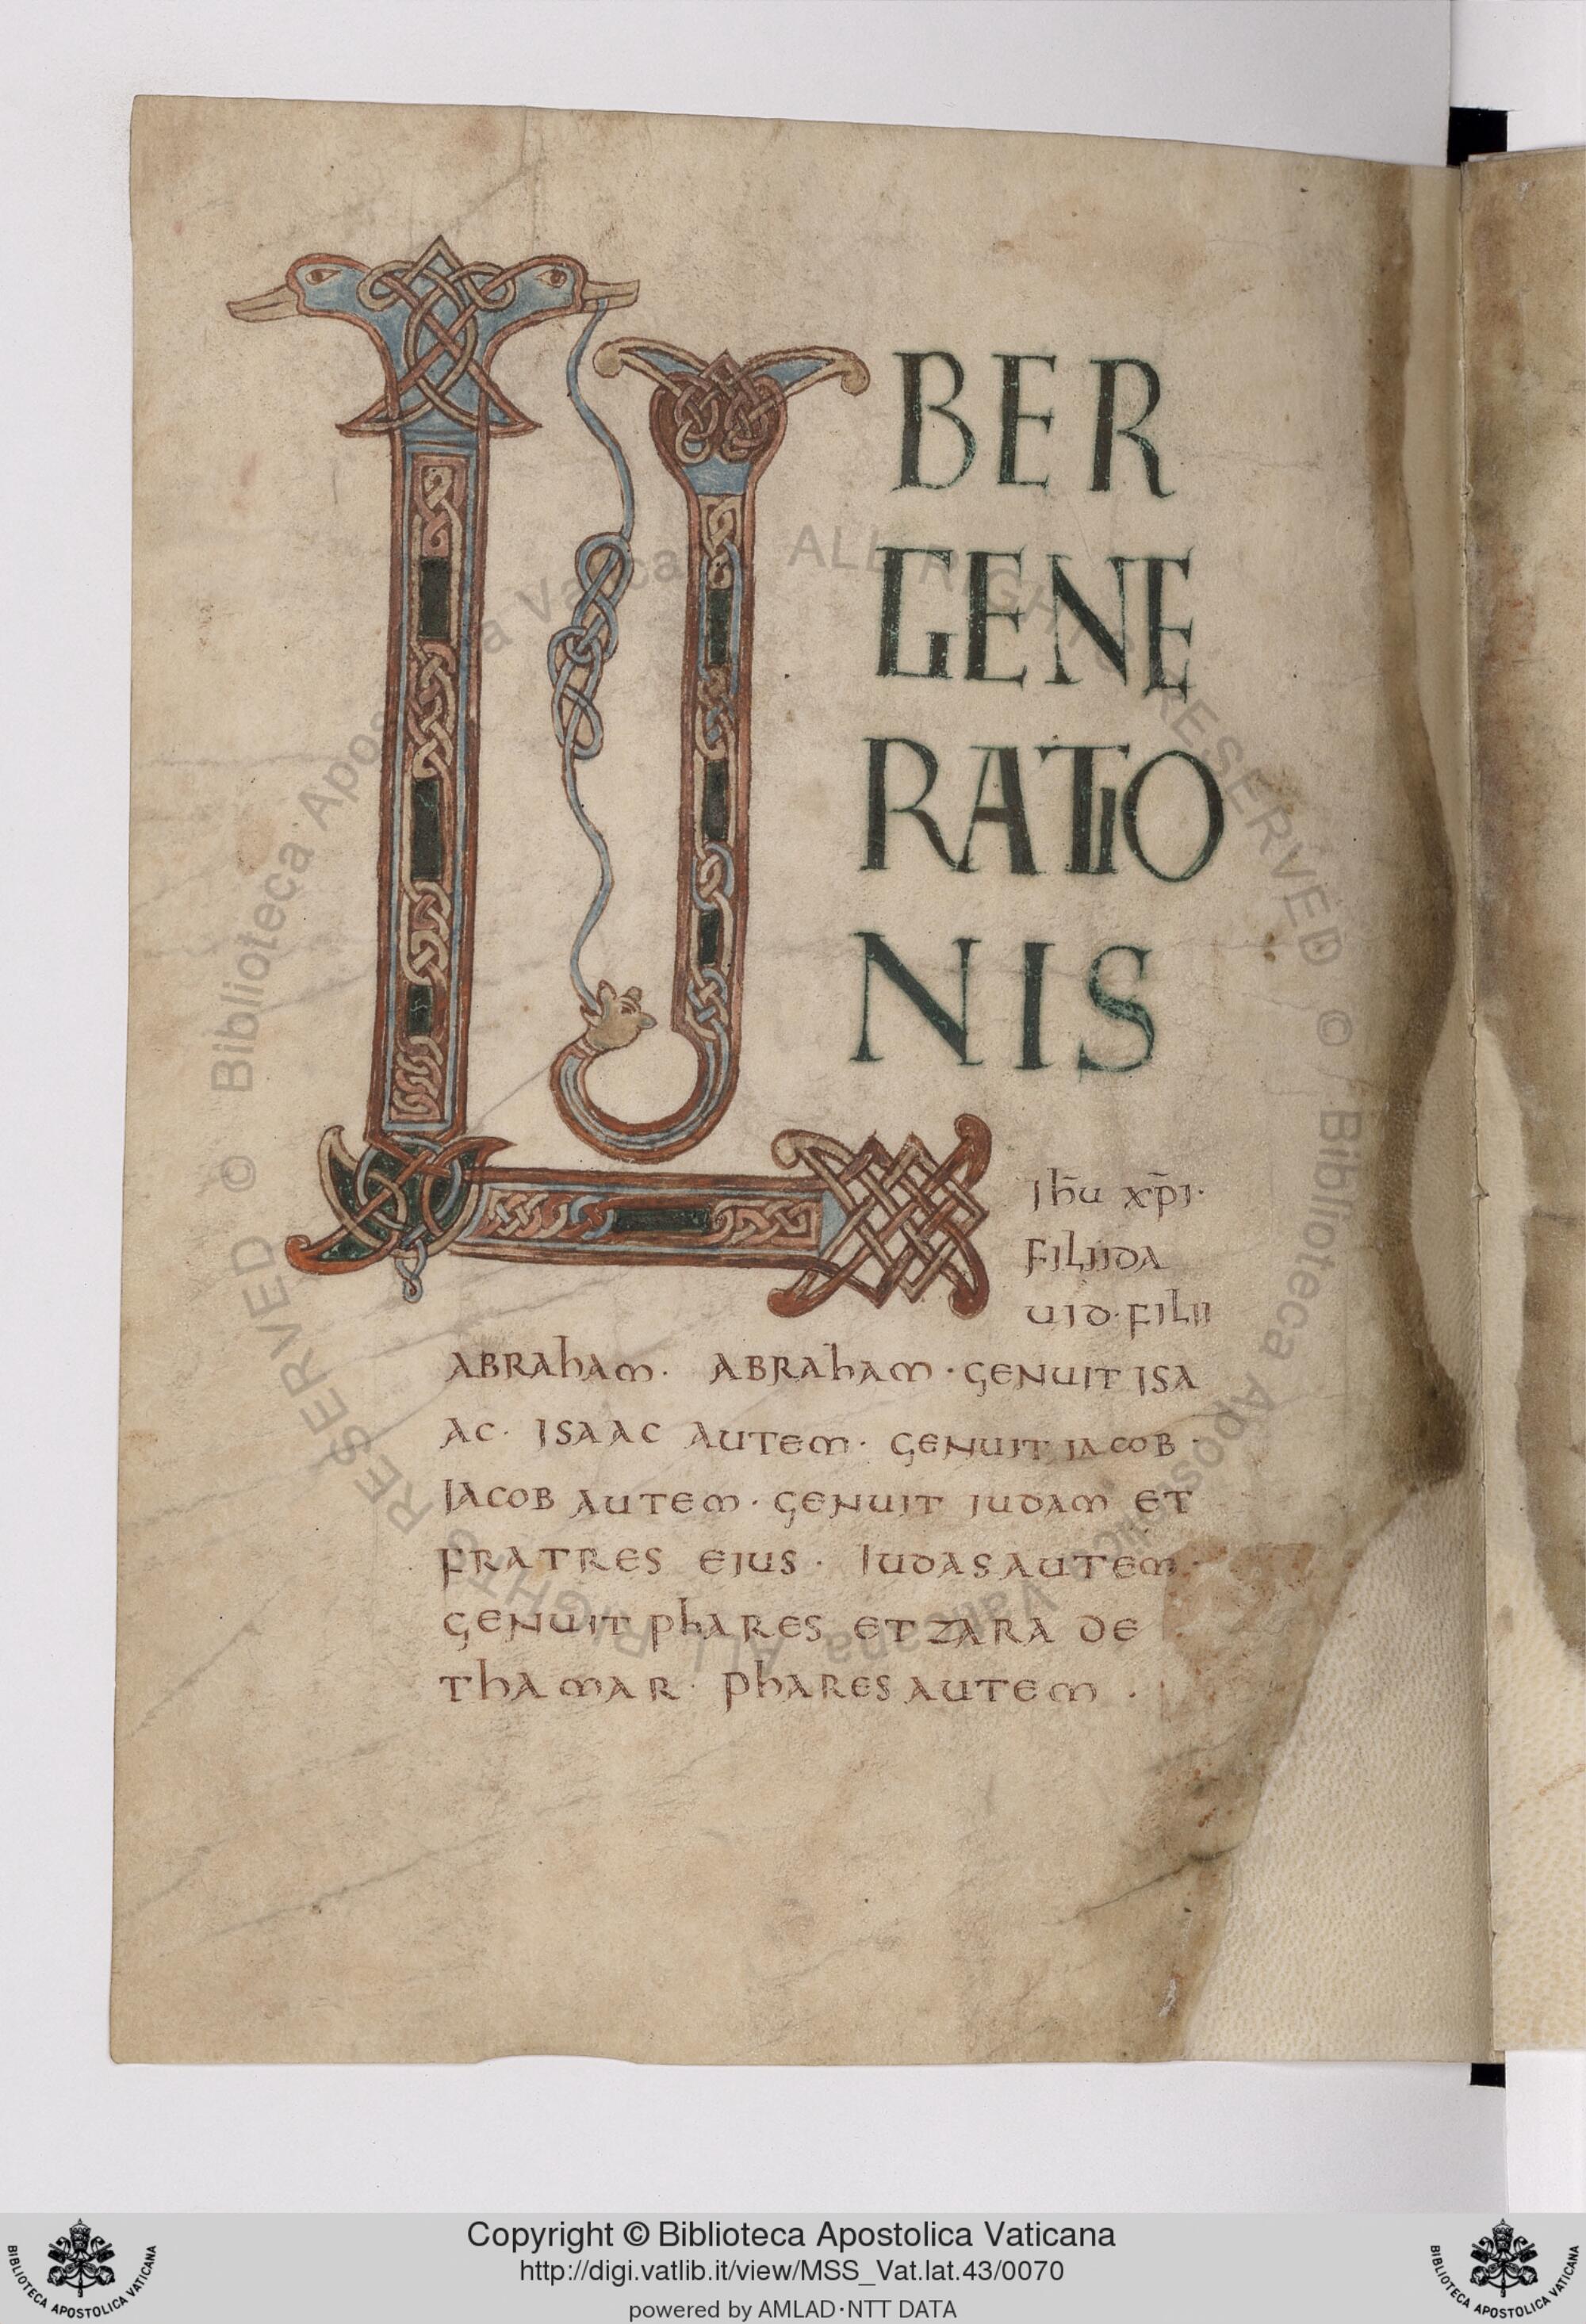 LIBER
GENE
RATIO
NIS
ih̄u xp̄i·
filii da
uid· filii
abraham· abraham· genuit isa
ac· isaac autem· genuit iacob·
iacob autem· genuit iudam et
fratres eius· iudas autem·
genuit phares et zara de
thamar· phares autem·
© Biblioteca Apostolica Vaticana ALL RIGHTS RESERVED © Biblioteca Apostolica Vaticana ALL RIGHTS RESERVED
Copyright © Biblioteca Apostolica Vaticana
http://digi.vatlib.it/view/MSS_Vat.lat.43/0070
powered by AMLAD·NTT DATA
BIBLIOTECA APOSTOLICA VATICANA
BIBLIOTECA APOSTOLICA VATICANA